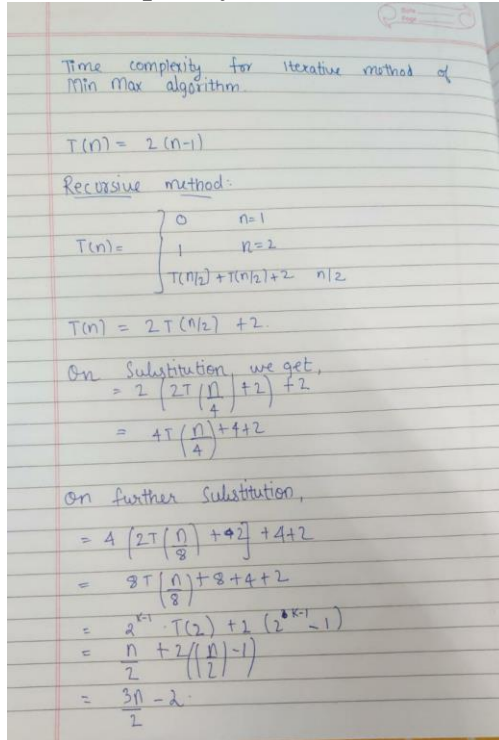 Time complexity for Iterative method of
Min Max algorithm.
T(n) = 2(n-1)
Recursive method:
T(n) = { 0 n=1
1 n=2
T(n/2) + T(n/2) + 2 n/2
T(n) = 2T(n/2) + 2.
On Substitution, we get,
= 2 (2T(n/4) + 2) + 2
= 4T(n/4) + 4 + 2
On further Substitution,
= 4 [2T(n/8) + 2] + 4 + 2
= 8T(n/8) + 8 + 4 + 2
= 2^(K-1) . T(2) + 2 (2^(K-1) - 1)
= n/2 + 2((n/2) - 1)
= 3n/2 - 2.